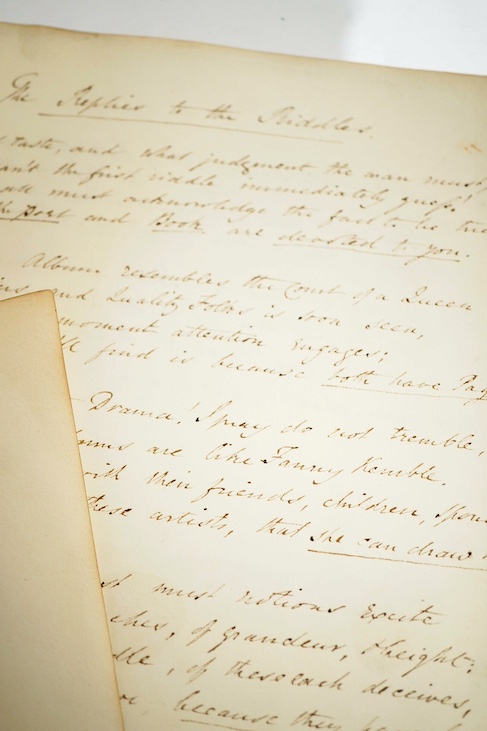 The Replies to the Riddles.
taste, and what judgment the man must
the first riddle immediately guess!
all must acknowledge the fact to be true
the Poet and Book are devoted to you.
Album resembles the Court of a Queen
and Quality Folks is soon seen,
moment attention engages;
find is because both have Pag
Drama! I pray do not tremble,
are like Fanny Kemble.
with their friends, children,
these artists, that she can draw
must notions excite
of grandeur, & height:
of these each deceives,
because they